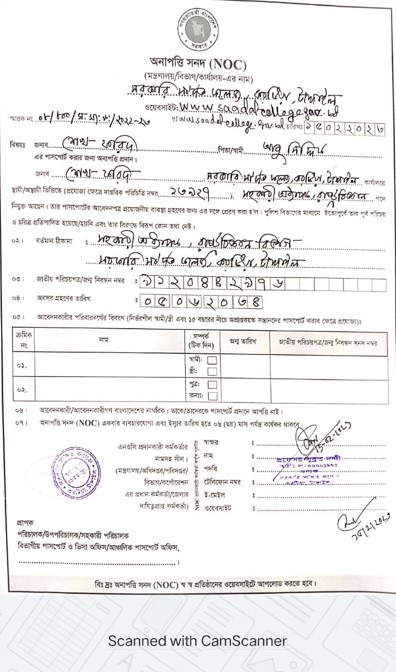 অনাপত্তি সনদ (NOC)
(মন্ত্রণালয়/বিভাগ/কার্যালয়-এর নাম)
সরকারি সা'দত কলেজ, করটিয়া, টাঙ্গাইল
ওয়েবসাইট: www.saadatcollege.gov.bd
স্মারক নং
তারিখ ১৫০২২০২৩
বিষয়ঃ জনাব শেখ ফরিদ পিতা/স্বামী: আবু সিদ্দিক
এর পাসপোর্ট করার জন্য অনাপত্তি প্রদান।
জনাব শেখ ফরিদ সরকারি সা'দত কলেজ, করটিয়া, টাঙ্গাইল কার্যালয়ে
স্থায়ী/অস্থায়ী ভিত্তিতে (প্রযোজ্য ক্ষেত্রে সামরিক পরিচিতি নম্বর) সহকারী অধ্যাপক, রাষ্ট্রবিজ্ঞান পদে
নিযুক্ত আছেন। তার পাসপোর্টের আবেদনপত্র প্রয়োজনীয় ব্যবস্থা গ্রহণের জন্য এই সঙ্গে প্রেরণ করা হ'ল। পুলিশ বিভাগের মাধ্যমে ইতোপূর্বে তার পূর্ব পরিচয়
ও চরিত্র প্রতিপাদিত হয়েছে/হয়নি এবং তার বিরুদ্ধে বিরূপ কোন তথ্য নেই।
০২। বর্তমান ঠিকানা : সহকারী অধ্যাপক, রাষ্ট্রবিজ্ঞান বিভাগ
সরকারি সা'দত কলেজ, করটিয়া, টাঙ্গাইল
০৩। জাতীয় পরিচয়পত্র/জন্ম নিবন্ধন নম্বর :
০৪। অবসর গ্রহণের তারিখ : ০৫০৬২০৩৪
০৫। আবেদনকারীর পরিবারবর্গের বিবরণ (নির্ভরশীল স্বামী/স্ত্রী এবং ১৫ বছরের নীচে অপ্রাপ্তবয়স্ক সন্তানদের পাসপোর্ট করার ক্ষেত্রে প্রযোজ্য)ঃ
ক্রমিক নং নাম সম্পর্ক (টিক দিন) জন্ম তারিখ জাতীয় পরিচয়পত্র/জন্ম নিবন্ধন সনদ নম্বর
০১. স্বামী:
স্ত্রী:
০২. পুত্র:
কন্যা:
০৬। আবেদনকারী/আবেদনকারীগণ বাংলাদেশের নাগরিক। তাকে/তাদেরকে পাসপোর্ট প্রদানে আপত্তি নাই।
০৭। অনাপত্তি সনদ (NOC) একবার ব্যবহারযোগ্য এবং ইস্যুর তারিখ হতে ০৬ (ছয়) মাস পর্যন্ত কার্যকর থাকবে।
এনওসি প্রদানকারী কর্মকর্তার
নামসহ সীল।
(মন্ত্রণালয়/অধিদপ্তর/পরিদপ্তর/
বিভাগ/কর্পোরেশন
এর প্রধান কর্মকর্তা/জেলার
দায়িত্বপ্রাপ্ত কর্মকর্তা)
স্বাক্ষর :
নাম :
পদবি :
টেলিফোন নম্বর :
ই-মেইল :
ওয়েবসাইট :
প্রাপক
পরিচালক/উপপরিচালক/সহকারী পরিচালক
বিভাগীয় পাসপোর্ট ও ভিসা অফিস/আঞ্চলিক পাসপোর্ট অফিস,
বিঃ দ্রঃ অনাপত্তি সনদ (NOC) স্ব স্ব প্রতিষ্ঠানের ওয়েবসাইটে আপলোড করতে হবে।
Scanned with CamScanner